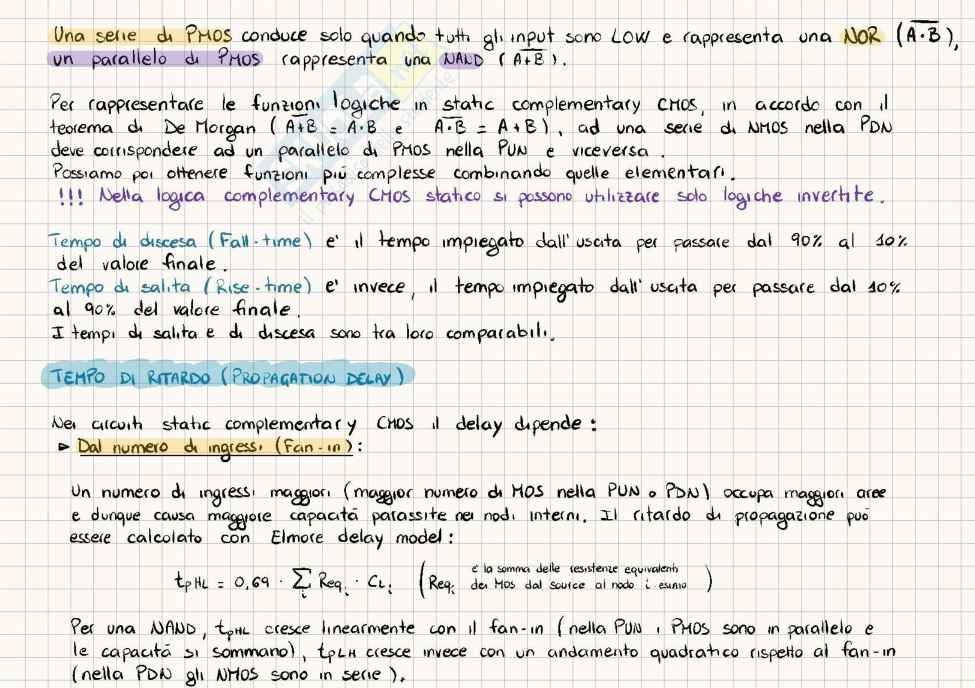 Una serie di PMOS conduce solo quando tutti gli input sono LOW e rappresenta una NOR (\overline{A·B}),
un parallelo di PMOS rappresenta una NAND (\overline{A+B}).
Per rappresentare le funzioni logiche in static complementary CMOS, in accordo con il
teorema di De Morgan (\overline{A+B} = A·B e \overline{A·B} = A+B), ad una serie di NMOS nella PDN
deve corrispondere ad un parallelo di PMOS nella PUN e viceversa.
Possiamo poi ottenere funzioni più complesse combinando quelle elementari.
!!! Nella logica complementary CMOS statico si possono utilizzare solo logiche invertite.
Tempo di discesa (Fall-time) e' il tempo impiegato dall'uscita per passare dal 90% al 10%
del valore finale.
Tempo di salita (Rise-time) e' invece, il tempo impiegato dall'uscita per passare dal 10%
al 90% del valore finale.
I tempi di salita e di discesa sono tra loro comparabili.
TEMPO DI RITARDO (PROPAGATION DELAY)
Nei circuiti static complementary CMOS il delay dipende:
► Dal numero di ingressi (Fan-in):
Un numero di ingressi maggiori (maggior numero di MOS nella PUN o PDN) occupa maggiori aree
e dunque causa maggiore capacità parassite nei nodi interni. Il ritardo di propagazione può
essere calcolato con Elmore delay model:
tpHL = 0,69 · ∑i Reqi · CLi (Reqi è la somma delle resistenze equivalenti
dei MOS dal source al nodo i-esimo)
Per una NAND, tpHL cresce linearmente con il fan-in (nella PUN i PMOS sono in parallelo e
le capacità si sommano), tpLH cresce invece con un andamento quadratico rispetto al fan-in
(nella PDN gli NMOS sono in serie).